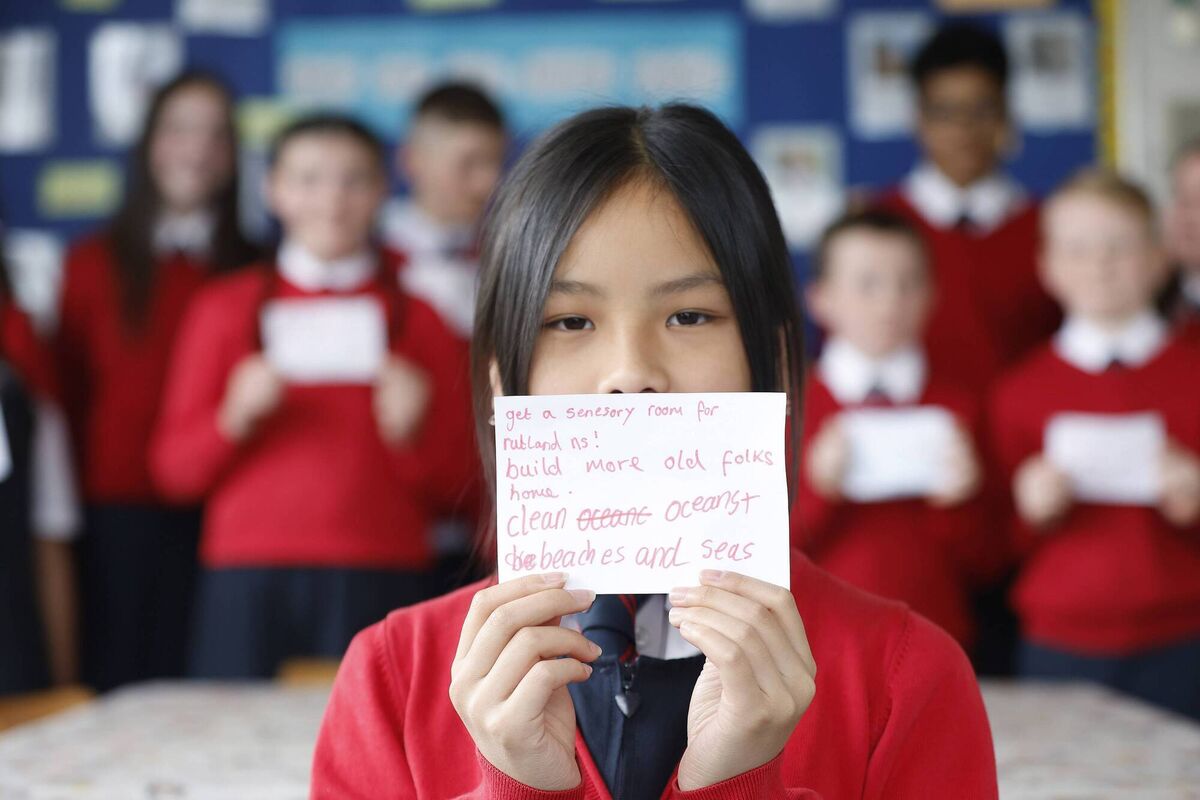 get a senesory room for
rutland ns!
build more old folks
home.
clean oceanc oceans+
beaches and seas